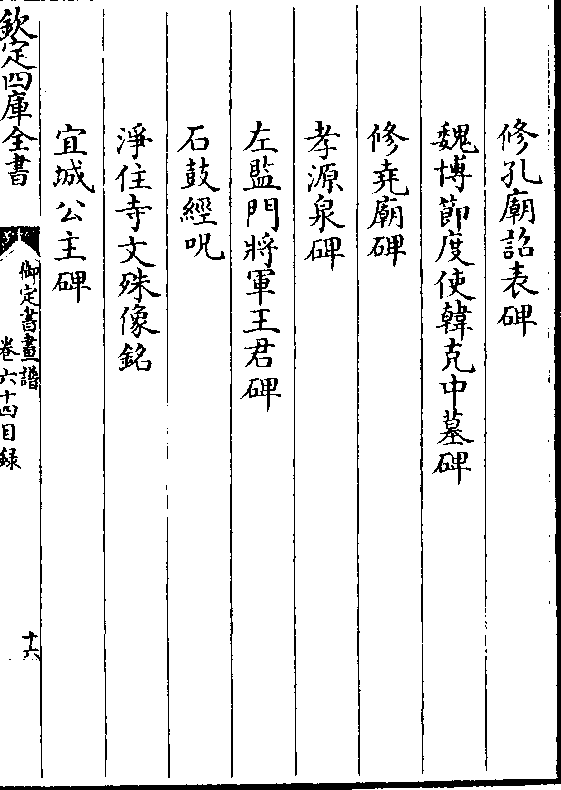 修孔廟詔表碑
魏博節度使韓克中墓碑
修堯廟碑
孝源泉碑
左監門將軍王君碑
石鼓經呪
淨住寺文殊像銘
宜城公主碑
欽定四庫全書
御定書畫譜
卷六十四目録
十六